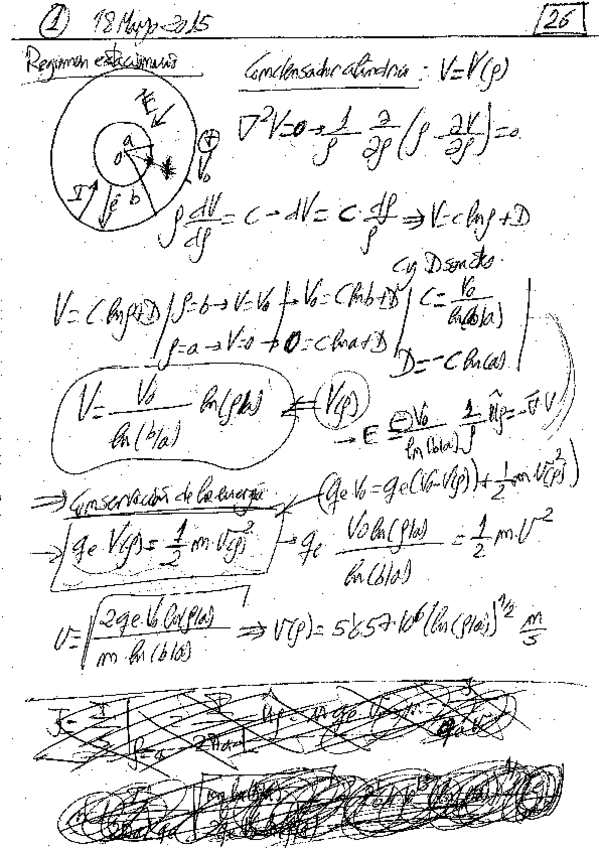 ① 18 Mayo 2015 26
Regimen estacionario
Condensador cilíndrico : V=V(ρ)
E
a
0
b
I
ρ̂
⊕
V₀
∇²V=0 → 1/ρ ∂/∂ρ (ρ ∂V/∂ρ) = 0
ρ dV/dρ = C → dV = C · dρ/ρ ⇒ V = C lnρ + D
C y D son ctes.
V = C lnρ + D | ρ=b → V=V₀ → V₀ = C ln b + D | C = V₀/ln(b/a)
ρ=a → V=0 → 0 = C ln a + D | D = -C ln(a)
V = V₀/ln(b/a) ln(ρ/a) ⇐ V(ρ)
→ E = ⊖V₀/ln(b/a) 1/ρ ûρ = -∇̄V
⇒ Conservación de la energía (qe V₀ = qe(V₀-V(ρ)) + 1/2 m v(ρ)²)
→ qe V(ρ) = 1/2 m v(ρ)² → qe V₀ ln(ρ/a)/ln(b/a) = 1/2 m v²
v = √(2qe V₀ ln(ρ/a)/m · ln(b/a)) ⇒ v(ρ) = 5'657·10⁶ (ln(ρ/a))^1/2 m/s